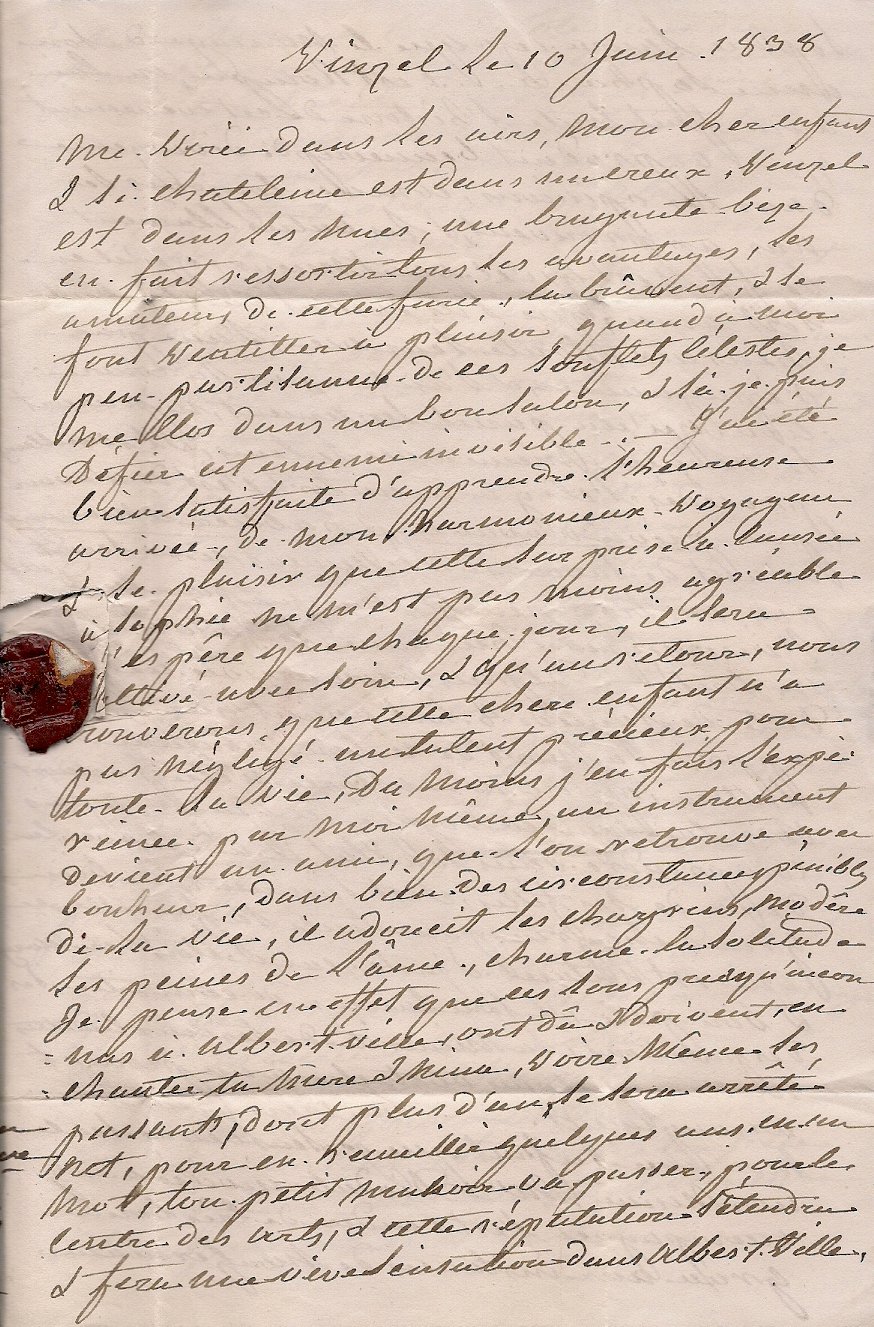 Vinzel le 10 Juin. 1838
me voici dans les airs, mon cher enfant
& si chateleine est dans un creux, Vinzel
est dans les nues, une bruyante bize
en fait ressortir tous les avantages, les
amateurs de cette furie, la bûvent, & se
font ventiller à plaisir quand à moi
peu partisanne de ces soufflets célestes, je
me clos dans un bon salon, & là je puis
défier cet ennemi invisible - . - J'ai été
bien satisfaite d'apprendre l'heureuse
arrivée, de mon harmonieux voyageur
& le plaisir que cette surprise à causée
à Sophie ne m'est pas moins agréable
j'espère que chaque jour, il sera
cultivé avec soin, & qu'au retour, nous
trouverons que cette chere enfant n'a
pas négligé un talent précieux pour
toute la vie, Du moins j'en fais l'expé-
rience par moi même, un instrument
devient un ami, que l'on retrouve avec
bonheur, dans bien des circonstances pénibles
de la vie, il adoucit les chagrins, modère
les peines de l'âme, charme la solitude
Je pense en effet que ces sons presqu'incon
= nus à Albert-ville, ont dû & doivent, en
= chanter ta mere & Nina, voire même les
passants, dont plus d'un, se sera arrêté
net, pour en recueillir quelques uns, en un
mot, ton petit manoir va passer, pour le
centre des arts, & cette réputation s'étendra
& fera une vive sensation dans Albert-Ville,